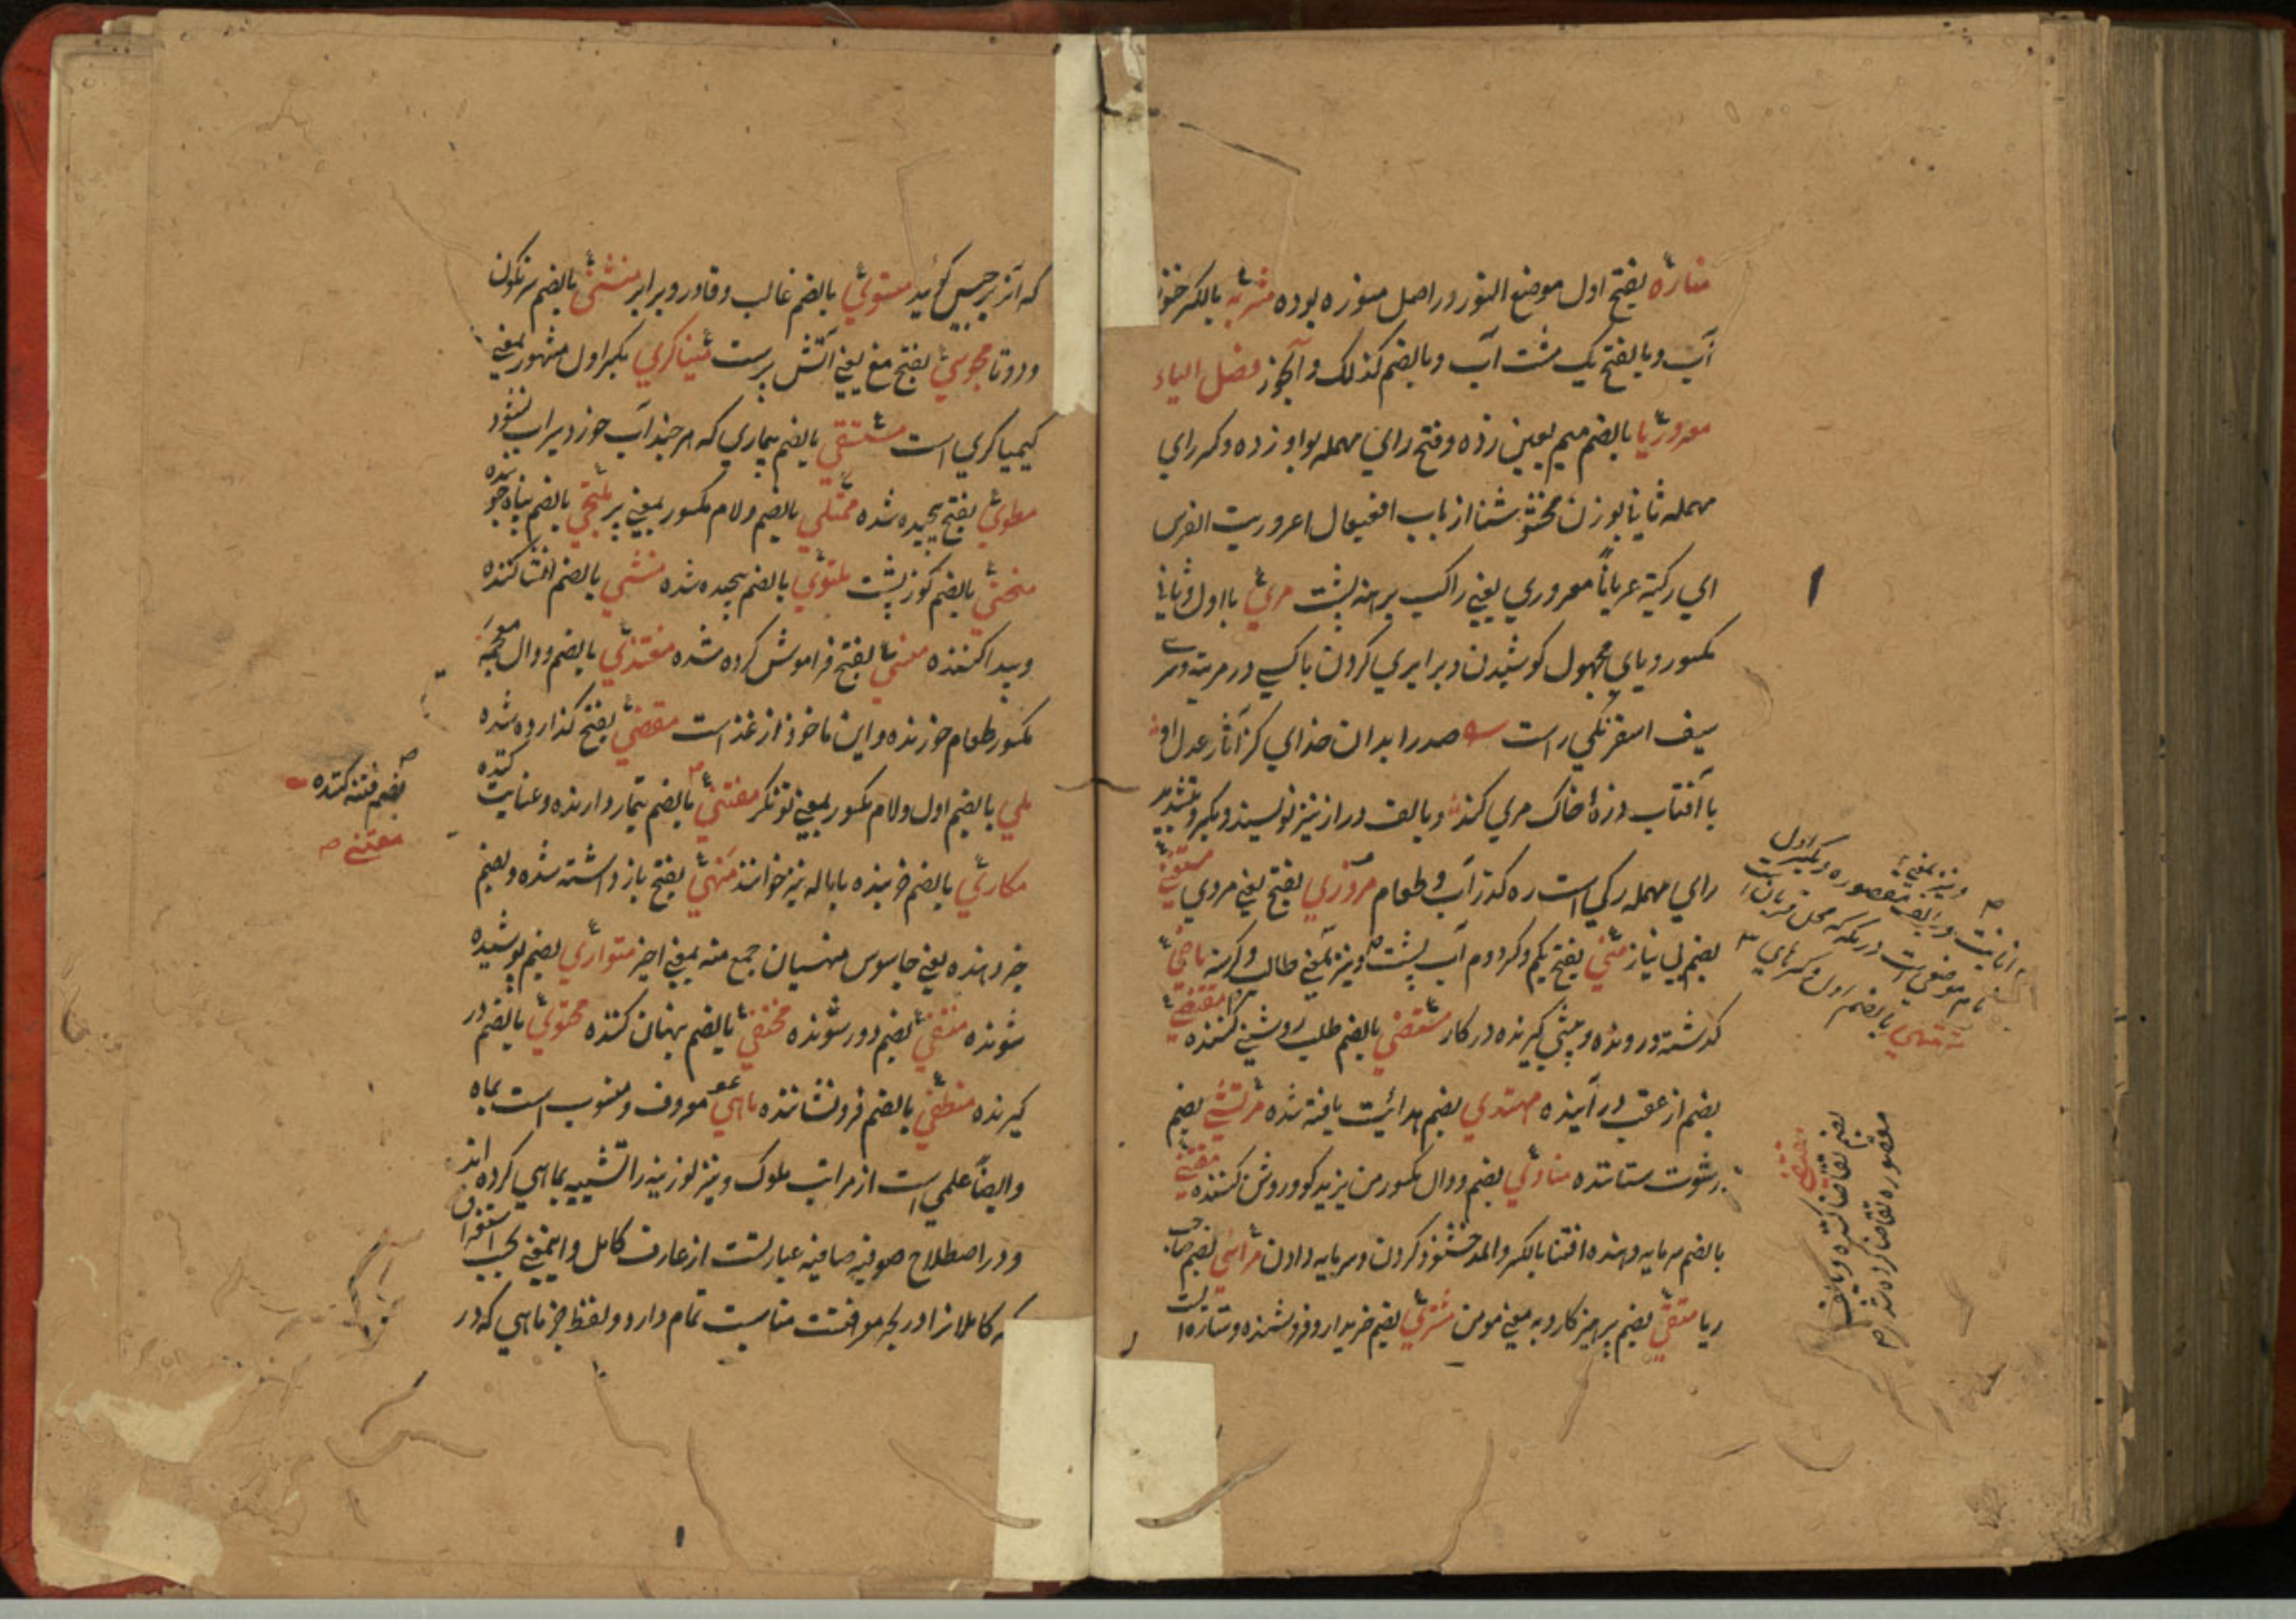 مناره بفتح اول موضع النور در اصل منوره بوده مشربه بالکسر
آب و بالفتح یک مشت آب و بالضم کذلک و آبخوز فصل الیاء
معروریا بالضم میم بعین زده و فتح رای مهمله بواو زده و کسر رای
مهمله ثانیا بوزن از باب افعیعال اعروریت الفرس
ای رکبته عریاناً معروری یعنی راکب برهنه پشت مری با اول و ثانی
مکسور و یای مجهول کوشیدن و برابری کردن با کسی در مرتبه
سیف اسفرنکی راست صدرا بدان خدای کز آثار عدل او
با آفتاب ذره خاک مری کند و بالف دراز نیز نویسند و بکسر و تشدید
رای مهمله رکی است ره کذر آب و طعام مروزی بفتح یعنی مروی مستغنی
بضم بی نیاز منی بفتح یکم و کسر دوم آب پشت و نیز بمعنی ماضی
کذشته و رونده و پیشی کیرنده در کار مستضی بالضم طلب روشنی کننده
بضم از عقب در آینده مهتدی بضم هدائیت یافته شده مرتشی بضم
رشوت ستاننده منادی بضم و دال مکسور من یزید کو و روشن کننده
بالضم سرمایه دهنده اقتنا بالکسر والمد خشنود کردن و سرمایه دادن مرائی بضم صاحب
ریا متقی بضم پرهیزکار و به معنی مومن مشتری بضم خریدار و فروشنده و ستاره است
بضم تقاضا کننده و بالف
مقصوره تقاضا کرده شد
که آنرا برجیس کوئید مستولی بالضم غالب و قادر و برابر منثنی بالضم سرنکون
و دوتا مجوسی بفتح مغ یعنی آتش پرست میناکری بکسر اول مشهور بمعنی
کیمیاکری است مستسقی بالضم بیماری که هر چند آب خورد سیراب نشود
مطوی بفتح پیچیده شده ممتلی بالضم و لام مکسور بمعنی پر ملتجی بالضم پناه جوینده
منحنی بالضم کوز پشت ملتوی بالضم پیچیده شده منشی بالضم انشا کننده
و پیدا کننده منسی بالفتح فراموش کرده شده مغتذی بالضم و ذال معجمه
مکسور طعام خورنده و این ماخوذ از غذاست مقضی بفتح کذارده شده
ملی بالضم اول و لام مکسور بمعنی توانکر معتنی بالضم تیمار دارنده و عنایت کننده
بضم فتنه کننده
مکاری بالضم خربنده با باله نیز خوانند منهی بفتح باز داشته شده و بضم
خبر دهنده یعنی جاسوس منهیان جمع منه بمعنی اخیر متواری بضم پوشیده
شونده منتفی بضم دور شونده مختفی بالضم پنهان کننده محتوی بالضم در
کیرنده منطفی بالضم فرو نشاننده ماهی معروف و منسوب است بماه
و ایضاً علمی است از مراتب ملوک و نیز لوزینه را تشبیه بماهی کرده اند
و در اصطلاح صوفیه صافیه عبارتست از عارف کامل و اینمعنی بجهت استغراق
که کاملانرا در بحر معرفتست مناسبت تمام دارد و لفظ جز ماهی که در